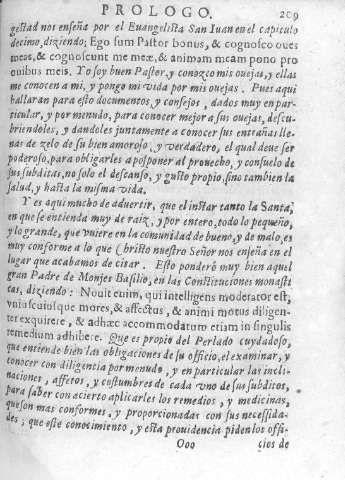 PROLOGO. 209
gestad nos enseña por el Euangelista San Iuan en el capitulo
decimo, diziendo; Ego sum Pastor bonus, & cognosco oues
meas, & cognoscunt me meæ, & animam meam pono pro
ouibus meis. Yo soy buen Pastor, y conozco mis ouejas, y ellas
me conocen a mi, y pongo mi vida por mis ouejas. Pues aqui
hallaràn para esto documentos, y consejos, dados muy en par-
ticular, y por menudo, para conocer mejor a sus ouejas, descu-
briendoles, y dandoles juntamente a conocer sus entrañas lle-
nas de zelo de su bien amoroso, y verdadero, el qual deue ser
poderoso, para obligarles a posponer al prouecho, y consuelo de
sus subditas, no solo el descanso, y gusto propio, sino tambien la
salud, y hasta la misma vida.
Y es aqui mucho de aduertir, que el instar tanto la Santa,
en que se entienda muy de raiz, y por entero, todo lo pequeño,
y lo grande, que vuiere en la comunidad de bueno, y de malo, es
muy conforme a lo que Christo nuestro Señor nos enseña en el
lugar que acabamos de citar. Esto ponderò muy bien aquel
gran Padre de Monjes Basilio, en las Constituciones monasti
cas, diziendo: Nouit enim, qui intelligens moderator est,
vniuscuiusque mores, & affectus, & animi motus diligen-
ter exquirere, & adhæc accommodatum etiam in singulis
remedium adhibere. Que es propio del Perlado cuydadoso,
que entiende bien las obligaciones de su officio, el examinar, y
conocer con diligencia por menudo, y en particular las incli-
naciones, afetos, y custumbres de cada vno de sus subditos,
para saber con acierto aplicarles los remedios, y medicinas,
que son mas conformes, y proporcionadas con sus necessida-
des; que este conocimiento, y esta prouidencia piden los offi-
Ooo cios de